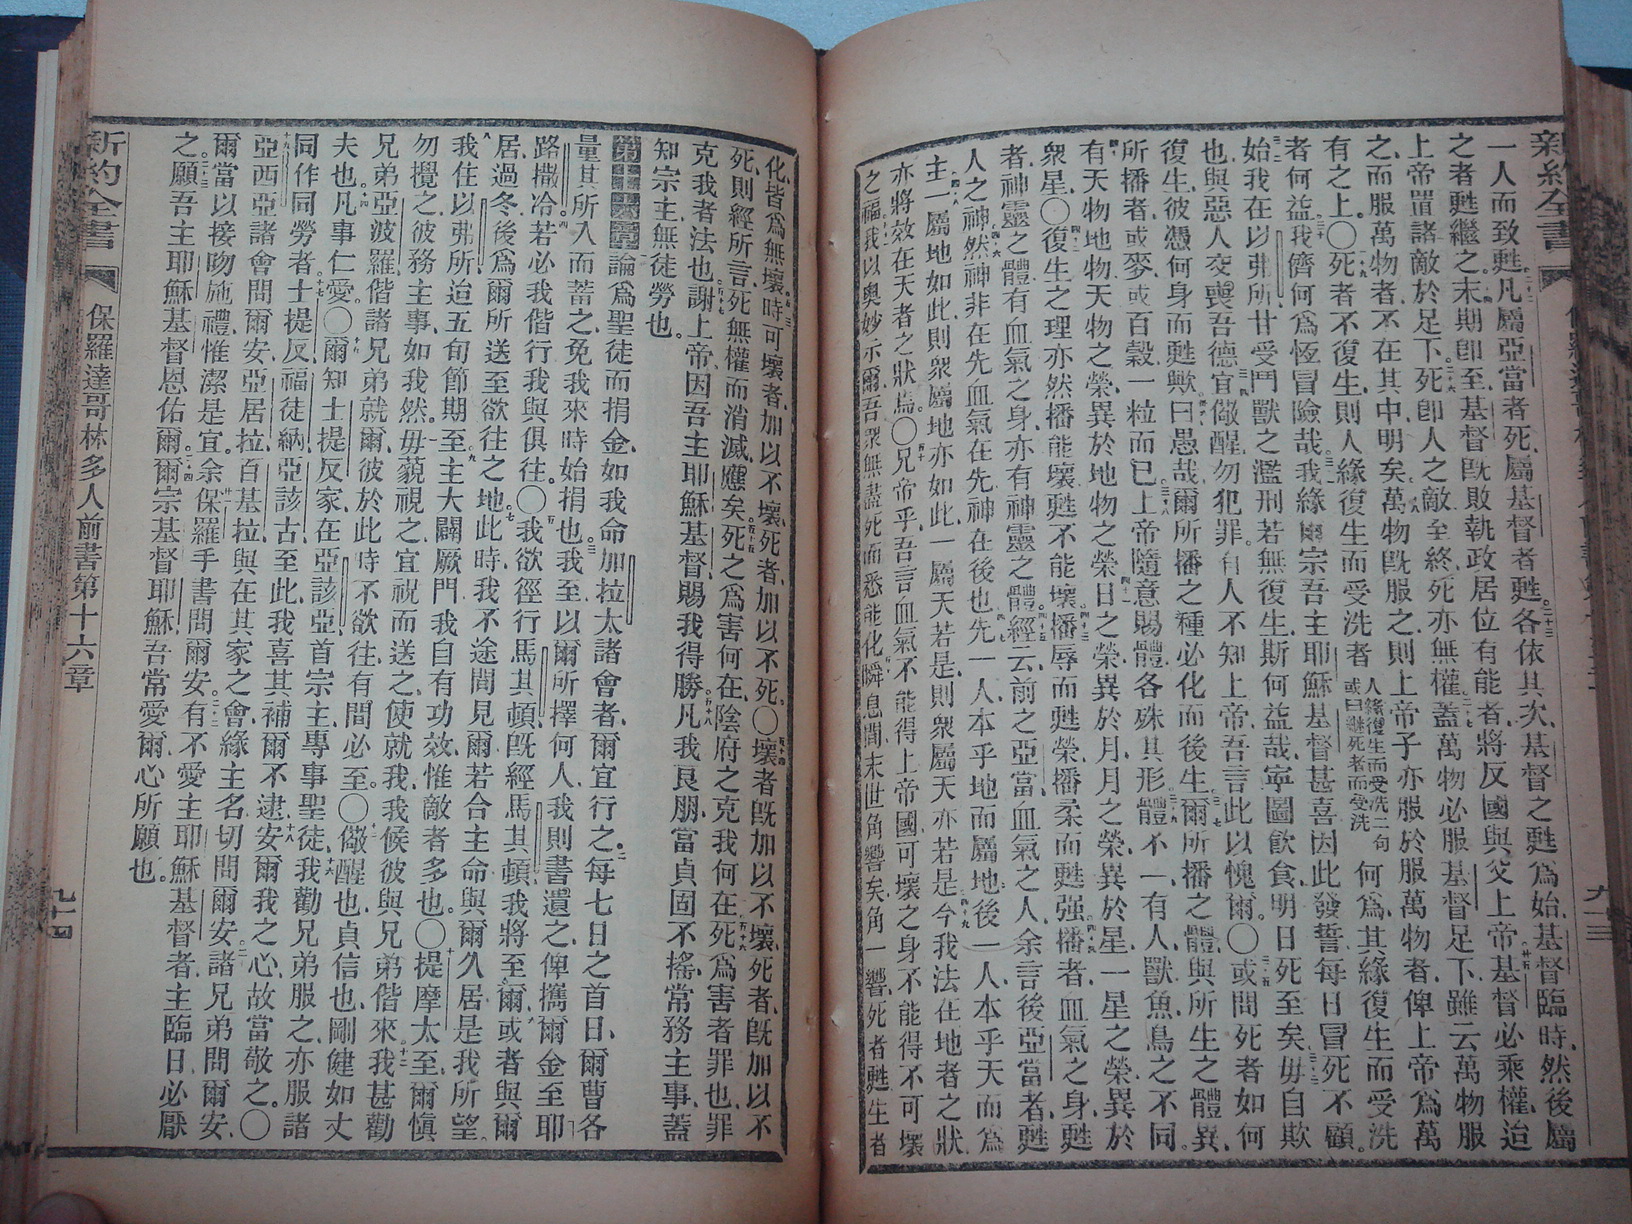 新約全書
九十三
一人而致甦。凡屬亞當者死、屬基督者甦。各依其次、基督之甦爲始、基督臨時、然後屬
之者甦繼之。末期卽至、基督旣敗執政居位有能者、將反國與父上帝、基督必乘權、迨
上帝置諸敵於足下。死卽人之敵、至終死亦無權。蓋萬物必服基督足下、雖云萬物服
之、而服萬物者、不在其中明矣。萬物旣服之、則上帝子亦服於服萬物者、俾上帝爲萬
有之上。〇死者不復生、則人緣復生而受洗者
人緣復生而受洗二句
或曰繼死者而受洗
何爲、其緣復生而受洗
者何益。我儕何爲恆冒險哉。我緣爾宗吾主耶穌基督甚喜、因此發誓、每日冒死不顧。
始我在以弗所、甘受鬥獸之濫刑、若無復生、斯何益哉、寧圖飲食、明日死至矣。毋自欺
也、與惡人交、喪吾德。宜儆醒勿犯罪、有人不知上帝、吾言此以愧爾。〇或問死者如何
復生、彼憑何身而甦歟。曰、愚哉、爾所播之種、必化而後生。爾所播之體、與所生之體異、
所播者、或麥、或百穀、一粒而已。上帝隨意賜體、各殊其形。體不一、有人獸魚鳥之不同。
有天物地物、天物之榮、異於地物之榮。日之榮異於月、月之榮異於星、一星之榮異於
衆星。〇復生之理亦然、播能壞、甦不能壞。播辱而甦榮、播柔而甦强。播者血氣之身、甦
者神靈之體、有血氣之身、亦有神靈之體。經云、前之亞當、血氣之人、余言後亞當者、甦
人之神。然神非在先、血氣在先、神在後也。先一人、本乎地而屬地、後一人、本乎天而爲
主。一屬地如此、則衆屬地亦如此、一屬天若是、則衆屬天亦若是。今我法在地者之狀、
亦將效在天者之狀焉。〇兄弟乎、吾言血氣不能得上帝國、可壞之身、不能得不可壞
之福。我以奧妙示爾、吾衆無盡死、而悉能化。瞬息間、末世角響矣、角一響、死者甦生者
化、皆爲無壞、時可壞者、加以不壞、死者、加以不死。〇壞者旣加以不壞、死者、旣加以不
死、則經所言、死無權而消滅、應矣。死之爲害何在、陰府之克我何在。死爲害者、罪也、罪
克我者、法也。謝上帝、因吾主耶穌基督、賜我得勝。凡我良朋、當貞固不搖、常務主事、蓋
知宗主、無徒勞也。
第十六章 論爲聖徒而捐金、如我命加拉太諸會者、爾宜行之。每七日之首日、爾曹各
量其所入而蓄之、免我來時始捐也。我至、以爾所擇何人、我則書遺之、俾攜爾金至耶
路撒冷。若必我偕行、我與俱往。〇我欲徑行馬其頓、旣經馬其頓、我將至爾、或者與爾
居、過冬、後爲爾所送、至欲往之地。此時、我不途間見爾、若合主命、與爾久居、是我所望。
我住以弗所、迨五旬節期至。主大闢厥門、我自有功效、惟敵者多也。〇提摩太至爾、愼
勿攪之、彼務主事、如我然。毋藐視之、宜祝而送之、使就我、我候彼與兄弟偕來。我甚勸
兄弟亞波羅、偕諸兄弟就爾、彼於此時不欲往、有間必至。〇儆醒也、貞信也、剛健如丈
夫也。凡事仁愛。〇爾知士提反家、在亞該亞首宗主、專事聖徒、我勸兄弟服之、亦服諸
同作同勞者。士提反、福徒納、亞該古至此、我喜其補爾不逮、安爾我之心、故當敬之。〇
亞西亞諸會問爾安、亞居拉、百基拉、與在其家之會、緣主名切問爾安。諸兄弟問爾安、
爾當以接吻施禮、惟潔是宜。余保羅手書問爾安。有不愛主耶穌基督者、主臨日必厭
之。願吾主耶穌基督恩佑爾。爾宗基督耶穌、吾常愛爾、心所願也。
新約全書
保羅達哥林多人前書第十六章
九十四